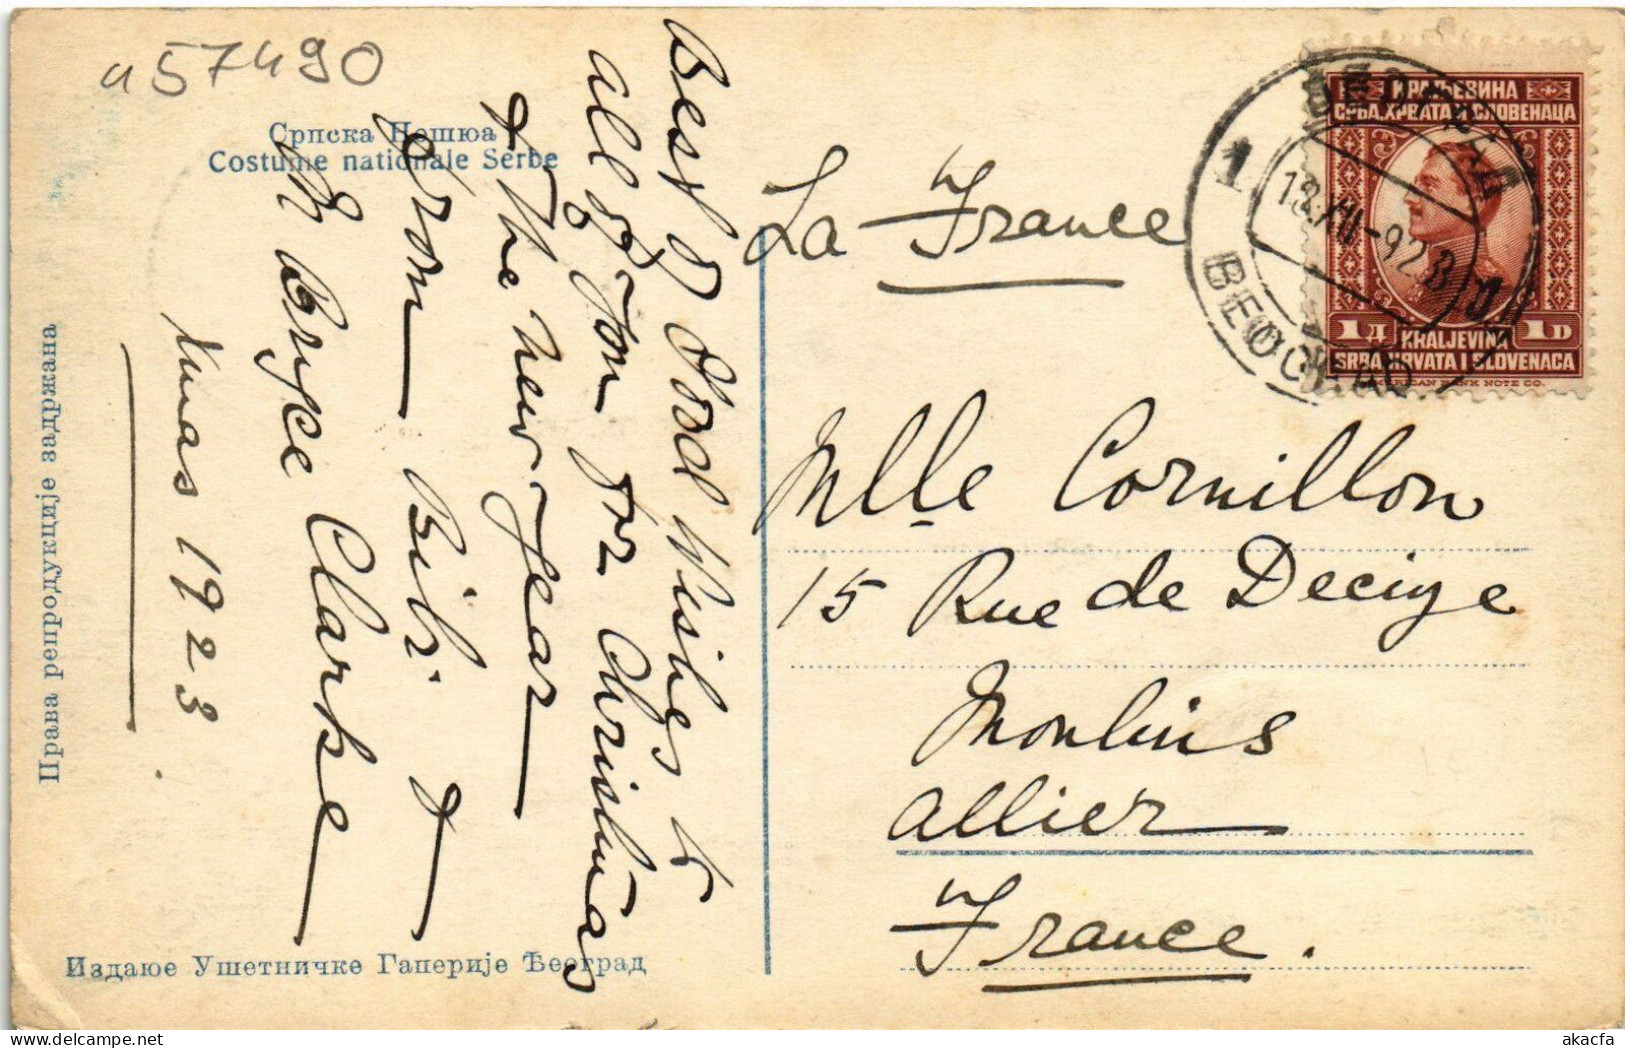 a57490
Српска Ношюа
Costume nationale Serbe
Права репродукције задржана
Издаюе Ушетничке Гаперије Ђеоград
Best & Good Wishes to
all of you for Christmas
& the new year
from Bib. &
M Bryce Clarke
Xmas 1923
La France
Mlle Cornillon
15 Rue de Decize
Moulins
Allier
France.
КРАЉЕВИНА
СРБА, ХРВАТА И СЛОВЕНАЦА
1 Д
1 D
KRALJEVINA
SRBA, HRVATA I SLOVENACA
AMERICAN BANK NOTE CO.
БЕОГРАД
1
13.XII-923
BEOGRAD
akacfa